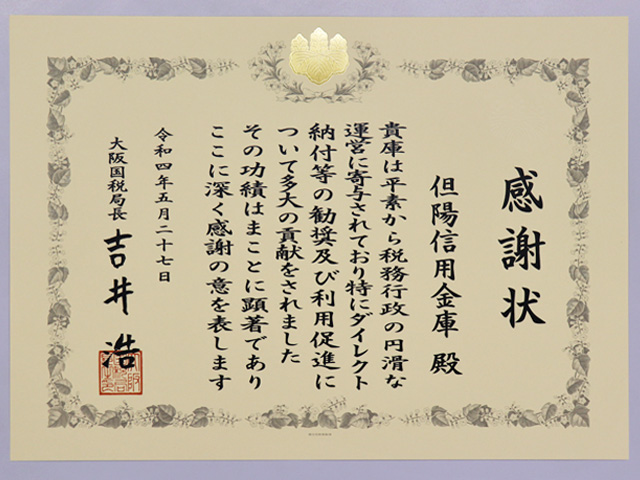 感謝状
但陽信用金庫 殿
貴庫は平素から税務行政の円滑な
運営に寄与されており特にダイレクト
納付等の勧奨及び利用促進に
ついて多大の貢献をされました
その功績はまことに顕著であり
ここに深く感謝の意を表します
令和四年五月二十七日
大阪国税局長 吉井 浩